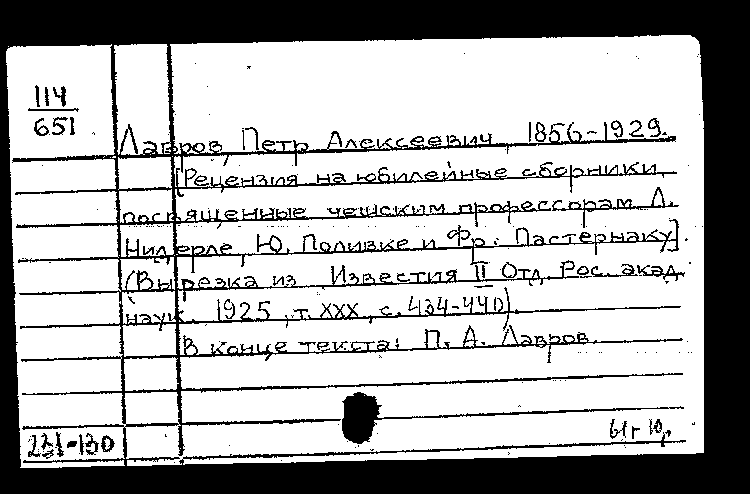 114
651
Лавров, Петр Алексеевич, 1856-1929.
[Рецензия на юбилейные сборники,
посвященные чешским профессорам Л.
Нидерле, Ю. Поливке и Фр. Пастернаку].
(Вырезка из Известия II Отд. Рос. акад.
наук. 1925, т. XXX, с. 434-440).
В конце текста: П. А. Лавров.
61 г 10,